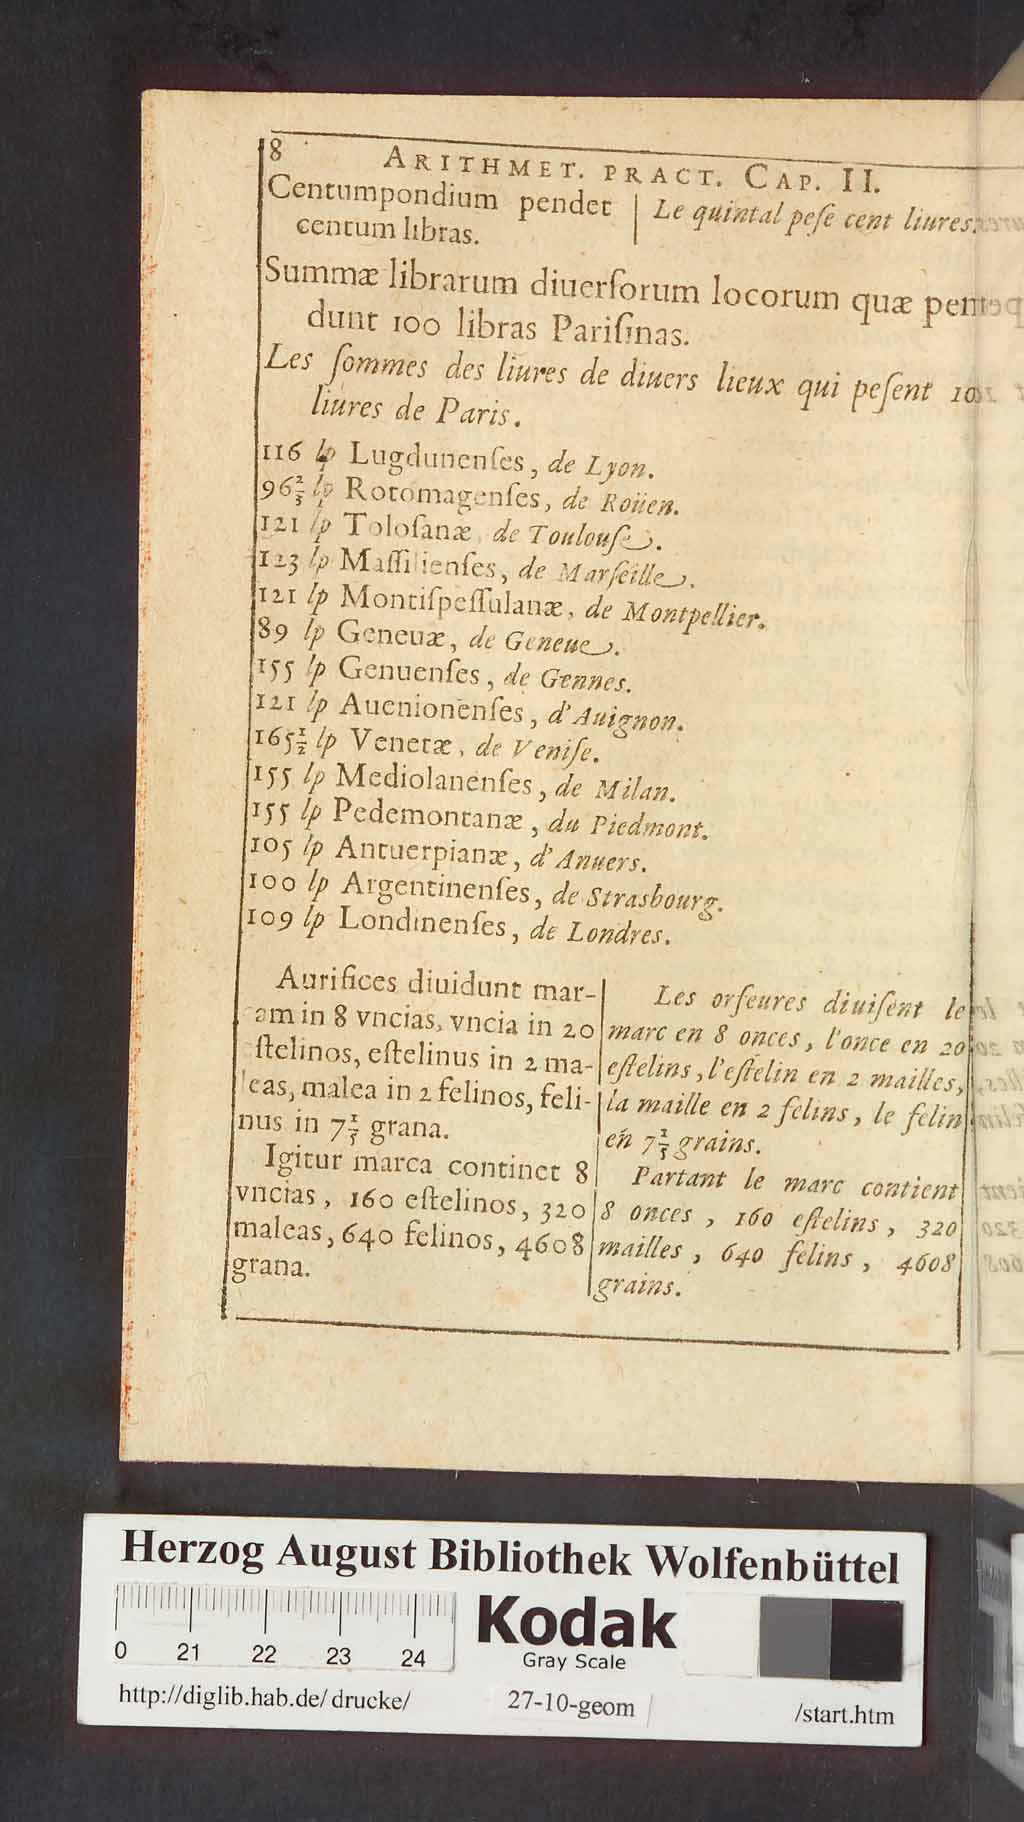 8 ARITHMET. PRACT. CAP. II.
Centumpondium pendet
centum libras.
Le quintal peſe cent liures.
Summæ librarum diuerſorum locorum quæ pen-
dunt 100 libras Pariſinas.
Les ſommes des liures de diuers lieux qui peſent 100
liures de Paris.
116 lp Lugdunenſes, de Lyon.
96 2/3 lp Rotomagenſes, de Roüen.
121 lp Toloſanæ, de Toulouſe.
123 lp Maſſilienſes, de Marſeille.
121 lp Montiſpeſſulanæ, de Montpellier.
89 lp Geneuæ, de Geneue.
155 lp Genuenſes, de Gennes.
121 lp Auenionenſes, d'Auignon.
165 1/2 lp Venetæ, de Veniſe.
155 lp Mediolanenſes, de Milan.
155 lp Pedemontanæ, du Piedmont.
105 lp Antuerpianæ, d'Anuers.
100 lp Argentinenſes, de Strasbourg.
109 lp Londinenſes, de Londres.
Aurifices diuidunt mar-
cam in 8 vncias, vncia in 20
eſtelinos, eſtelinus in 2 ma-
leas, malea in 2 felinos, feli-
nus in 7 1/5 grana.
Igitur marca continet 8
vncias, 160 eſtelinos, 320
maleas, 640 felinos, 4608
grana.
Les orfeures diuiſent le
marc en 8 onces, l'once en 20
eſtelins, l'eſtelin en 2 mailles,
la maille en 2 felins, le felin
en 7 1/5 grains.
Partant le marc contient
8 onces, 160 eſtelins, 320
mailles, 640 felins, 4608
grains.
Herzog August Bibliothek Wolfenbüttel
0 21 22 23 24
Kodak
Gray Scale
http://diglib.hab.de/drucke/ 27-10-geom /start.htm